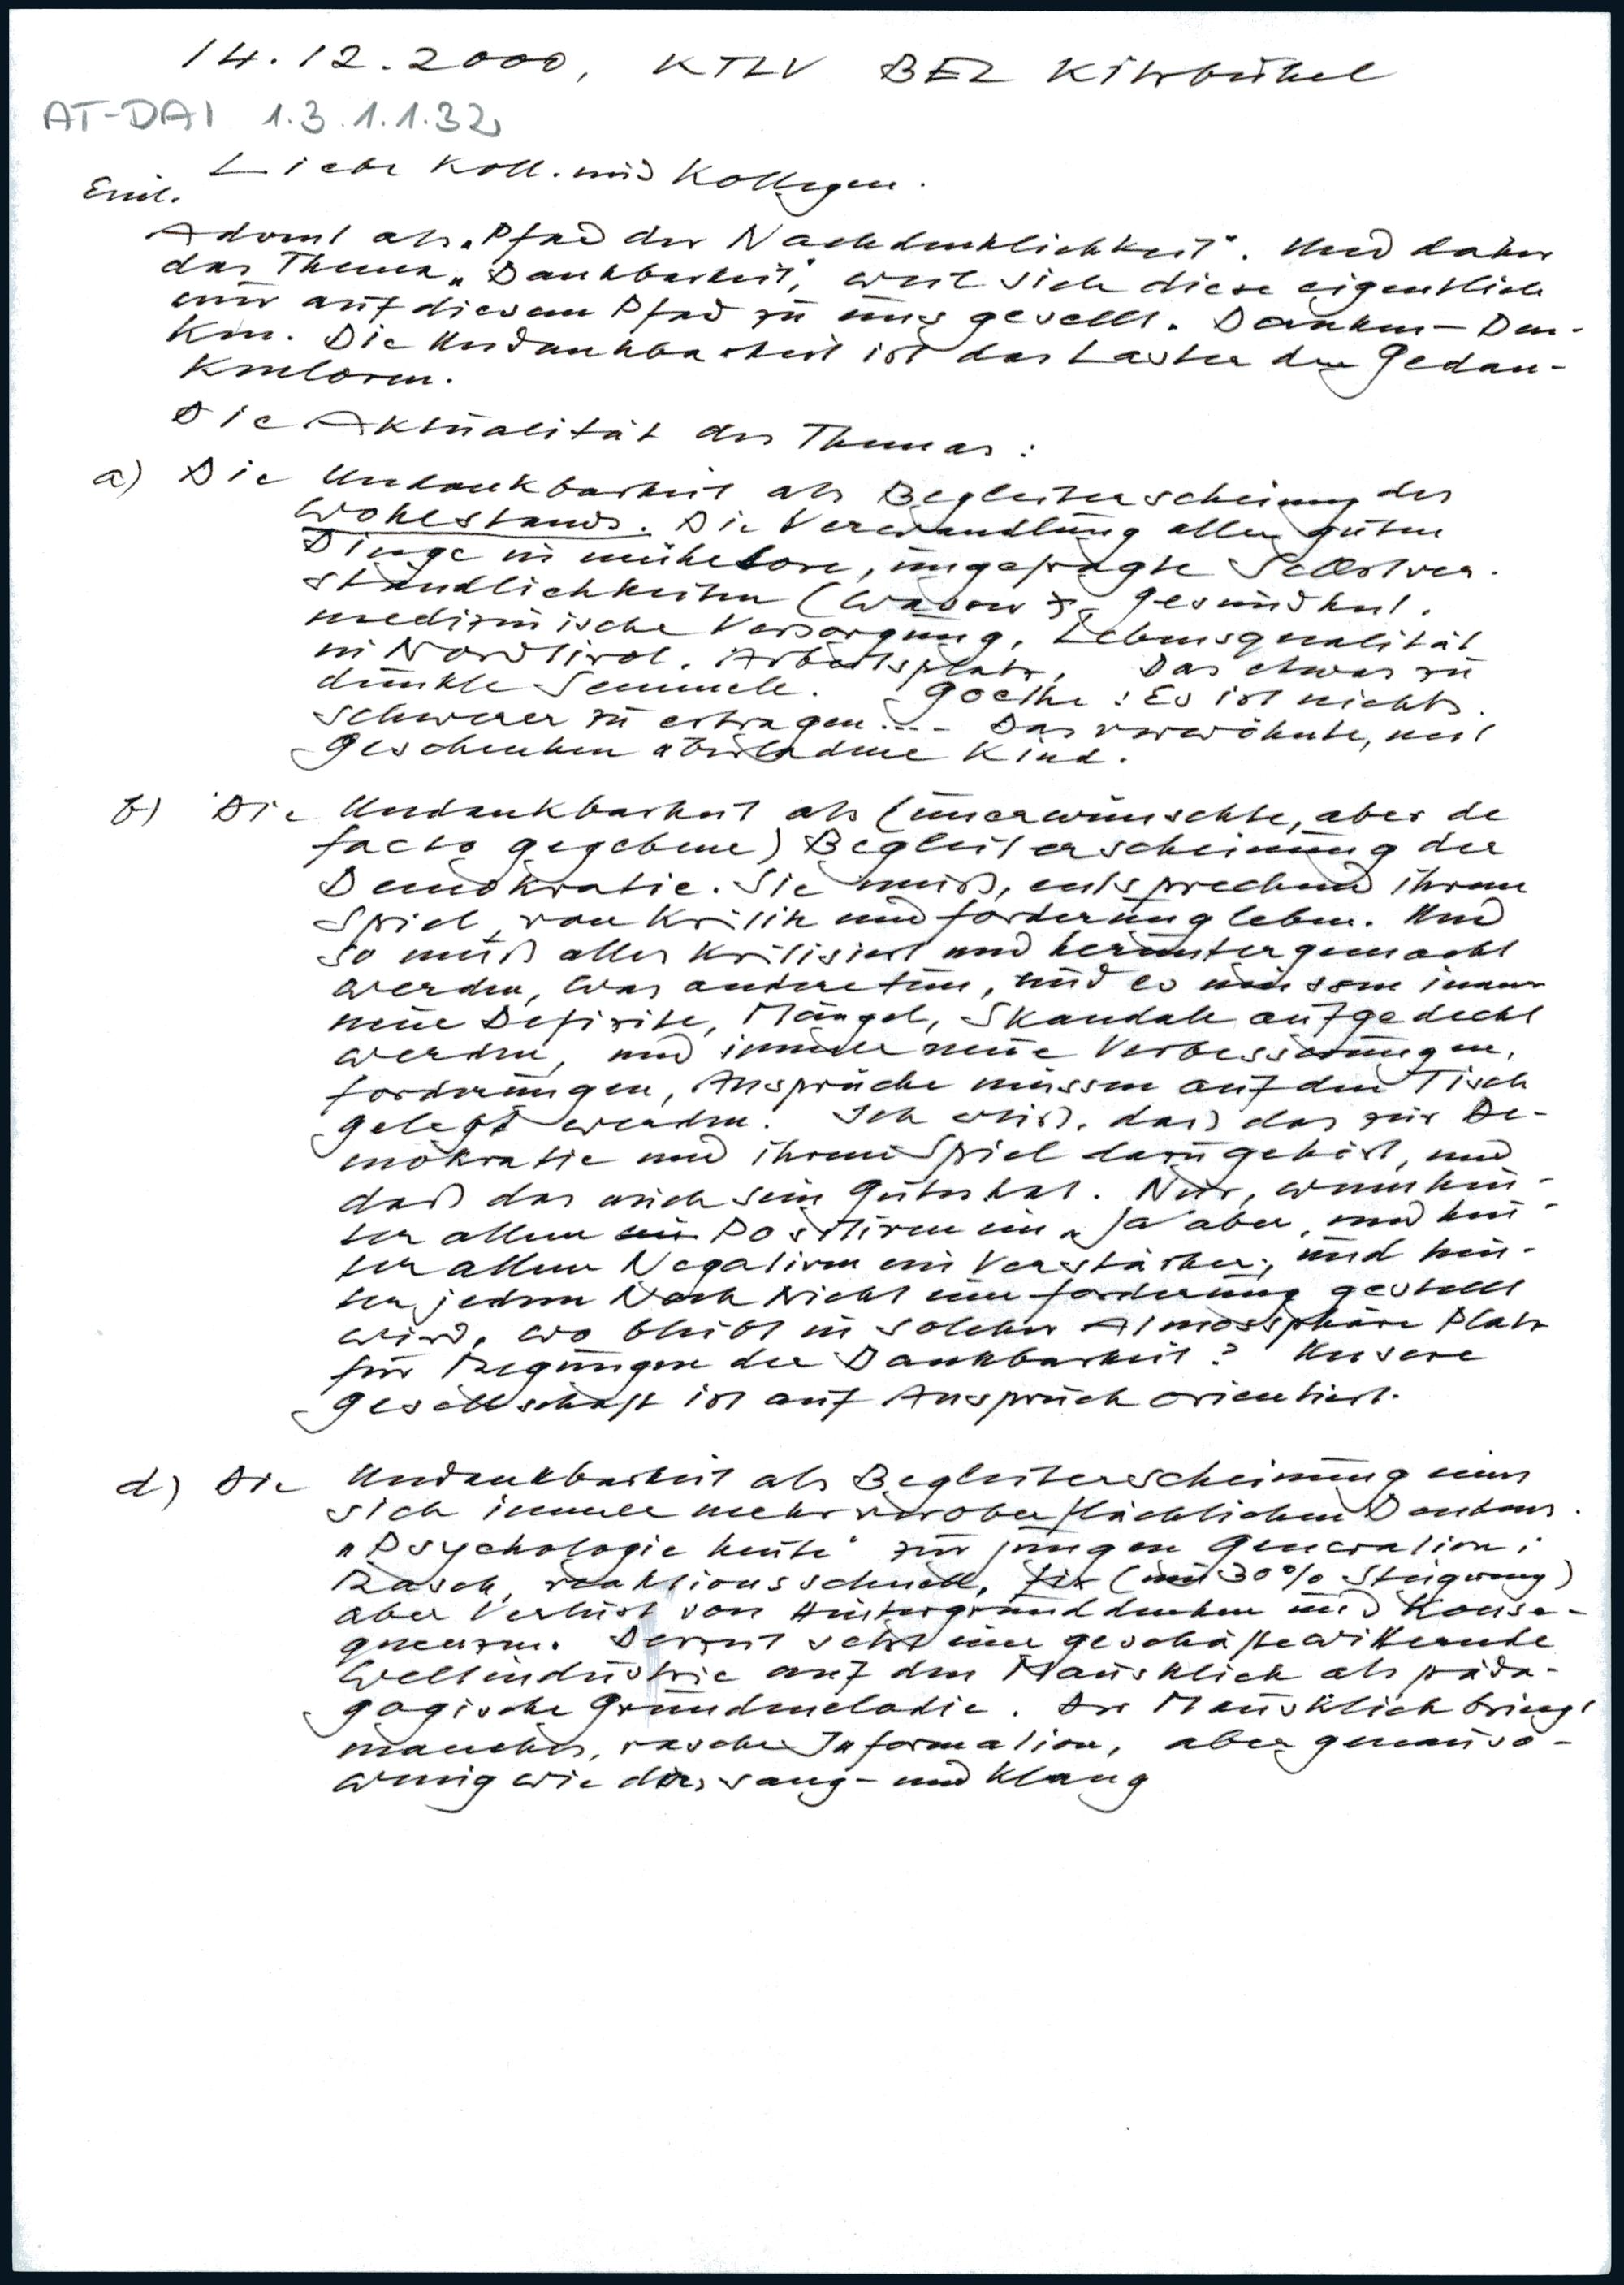 14.12.2000, KTLV BEZ Kitzbühel
AT-DAI 1.3.1.1.32
Liebe Koll. und Kollegen.
Einl.
Advent als „Pfad der Nachdenklichkeit“. Und daher
das Thema „Dankbarkeit“, weil sich diese eigentlich
nur auf diesem Pfad zu uns gesellt. Danken – Den-
ken. Die Undankbarkeit ist das Laster der Gedan-
kenlosen.
Die Aktualität des Themas:
a) Die Undankbarkeit als Begleiterscheinung des
Wohlstands. Die Verwandlung aller guten
Dinge in mühelose, ungefragte Selbstver-
ständlichkeiten (Wasser, Gesundheit.
medizinische Versorgung, Lebensqualität
in Nordtirol. Arbeitsplatz, Das etwas zu
dunkle Semmele. Goethe: Es ist nichts
schwerer zu ertragen.... Das verwöhnte, mit
Geschenken überladene Kind.
b) Die Undankbarkeit als (unerwünschte, aber de
facto gegebene) Begleiterscheinung der
Demokratie. Sie muß, entsprechend ihrem
Spiel, von Kritik und Forderung leben. Und
so muß alles kritisiert und heruntergemacht
werden, was andere tun, und es müssen immer
neue Defizite, Mängel, Skandale aufgedeckt
werden, und immer neue Verbesserungen,
Forderungen, Ansprüche müssen auf den Tisch
gelegt werden. Ich weiß, daß das zur De-
mokratie und ihrem Spiel dazugehört, und
daß das auch sein Gutes hat. Nur, wenn hin-
ter allem Positiven ein „Ja aber, und hin-
ter allem Negativen ein Verstärker, und hin-
ter jedem Noch Nicht eine Forderung gestellt
wird, wo bleibt in solcher Atmossphäre Platz
für Regungen der Dankbarkeit? Unsere
Gesellschaft ist auf Anspruch orientiert.
d) Die Undankbarkeit als Begleiterscheinung eines
sich immer mehr veroberflächlichen Denkens.
„Psychologie heute“ zur jungen Generation:
Rasch, reaktionsschnell, fix (mit 30% Steigerung)
aber Verlust von Hintergrunddenken und Konse-
quenzen. Derzeit setzt eine geschäftewitternde
Weltindustrie auf den Mausklick als päda-
gogische Grundmelodie. Der Mausklick bringt
manches, rasche Information, aber genauso-
wenig wie der sang- und Klang